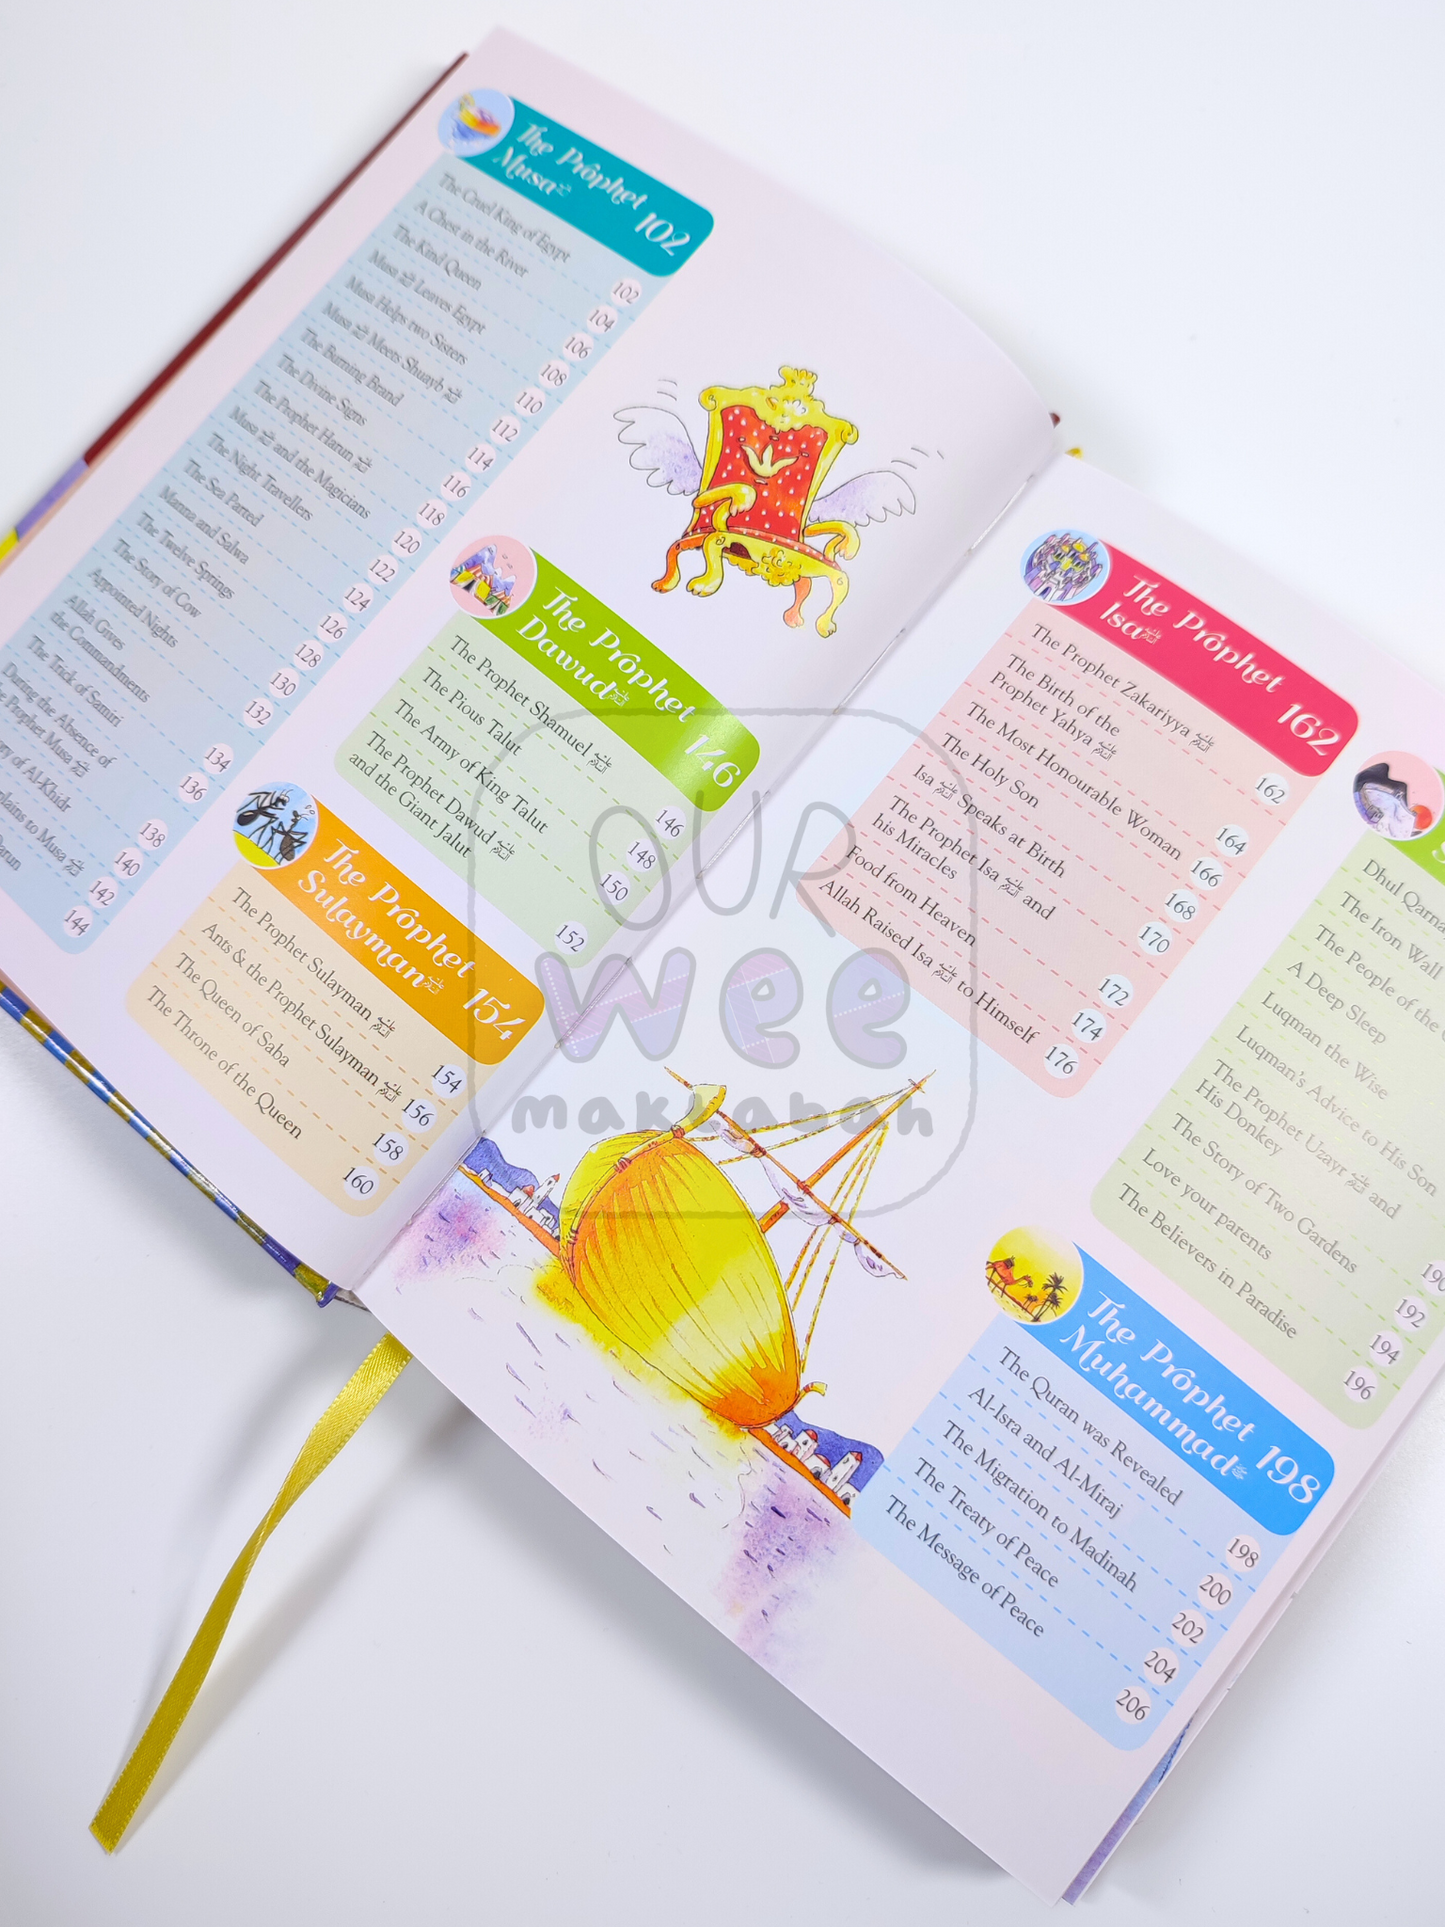 The Prophet
Musa عليه السلام 102
The Cruel King of Egypt 102
A Chest in the River 104
The Kind Queen 106
Musa عليه السلام Leaves Egypt 108
Musa Helps two Sisters 110
Musa عليه السلام Meets Shuayb عليه السلام 112
The Burning Brand 114
The Divine Signs 116
The Prophet Harun عليه السلام 118
Musa عليه السلام and the Magicians 120
The Night Travellers 122
The Sea Parted 124
Manna and Salwa 126
The Twelve Springs 128
The Story of Cow 130
Appointed Nights 132
Allah Gives
the Commandments 134
The Trick of Samiri 136
During the Absence of
Prophet Musa عليه السلام 138
of Al-Khidr 140
to Musa عليه السلام 142
144
The Prophet
Dawud عليه السلام 146
The Prophet Shamuel عليه السلام 146
The Pious Talut 148
The Army of King Talut 150
The Prophet Dawud عليه السلام
and the Giant Jalut 152
The Prophet
Sulayman عليه السلام 154
The Prophet Sulayman عليه السلام 154
Ants & the Prophet Sulayman عليه السلام 156
The Queen of Saba 158
The Throne of the Queen 160
The Prophet
Isa عليه السلام 162
The Prophet Zakariyya عليه السلام 162
The Birth of the
Prophet Yahya عليه السلام 164
The Most Honourable Woman 166
The Holy Son 168
Isa عليه السلام Speaks at Birth 170
The Prophet Isa عليه السلام and
his Miracles 172
Food from Heaven 174
Allah Raised Isa عليه السلام to Himself 176
Dhul
The Iron Wall
The People of the
A Deep Sleep
Luqman the Wise
Luqman's Advice to His Son
The Prophet Uzayr عليه السلام and
His Donkey 190
The Story of Two Gardens 192
Love your parents 194
The Believers in Paradise 196
The Prophet
Muhammad ﷺ 198
The Quran was Revealed 198
Al-Isra and Al-Miraj 200
The Migration to Madinah 202
The Treaty of Peace 204
The Message of Peace 206
OUR
wee
maktabah